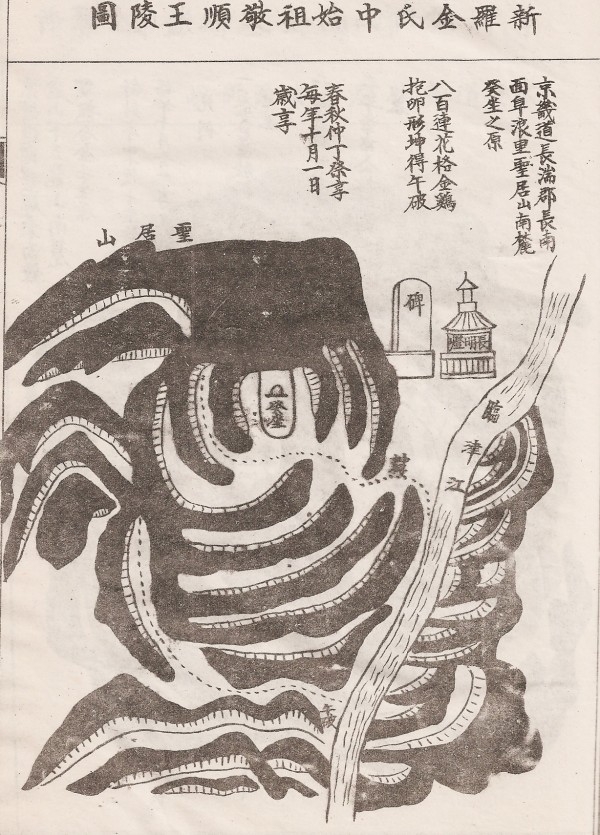 新羅金氏中始祖敬順王陵圖
京畿道長湍郡長南
面皐浪里聖居山南麓
癸坐之原
八百蓮花格金鷄
抱卵形坤得午破
春秋仲丁祭享
每年十月一日
歲享
聖居山
碑
長明燈
癸坐
臨津江
午破